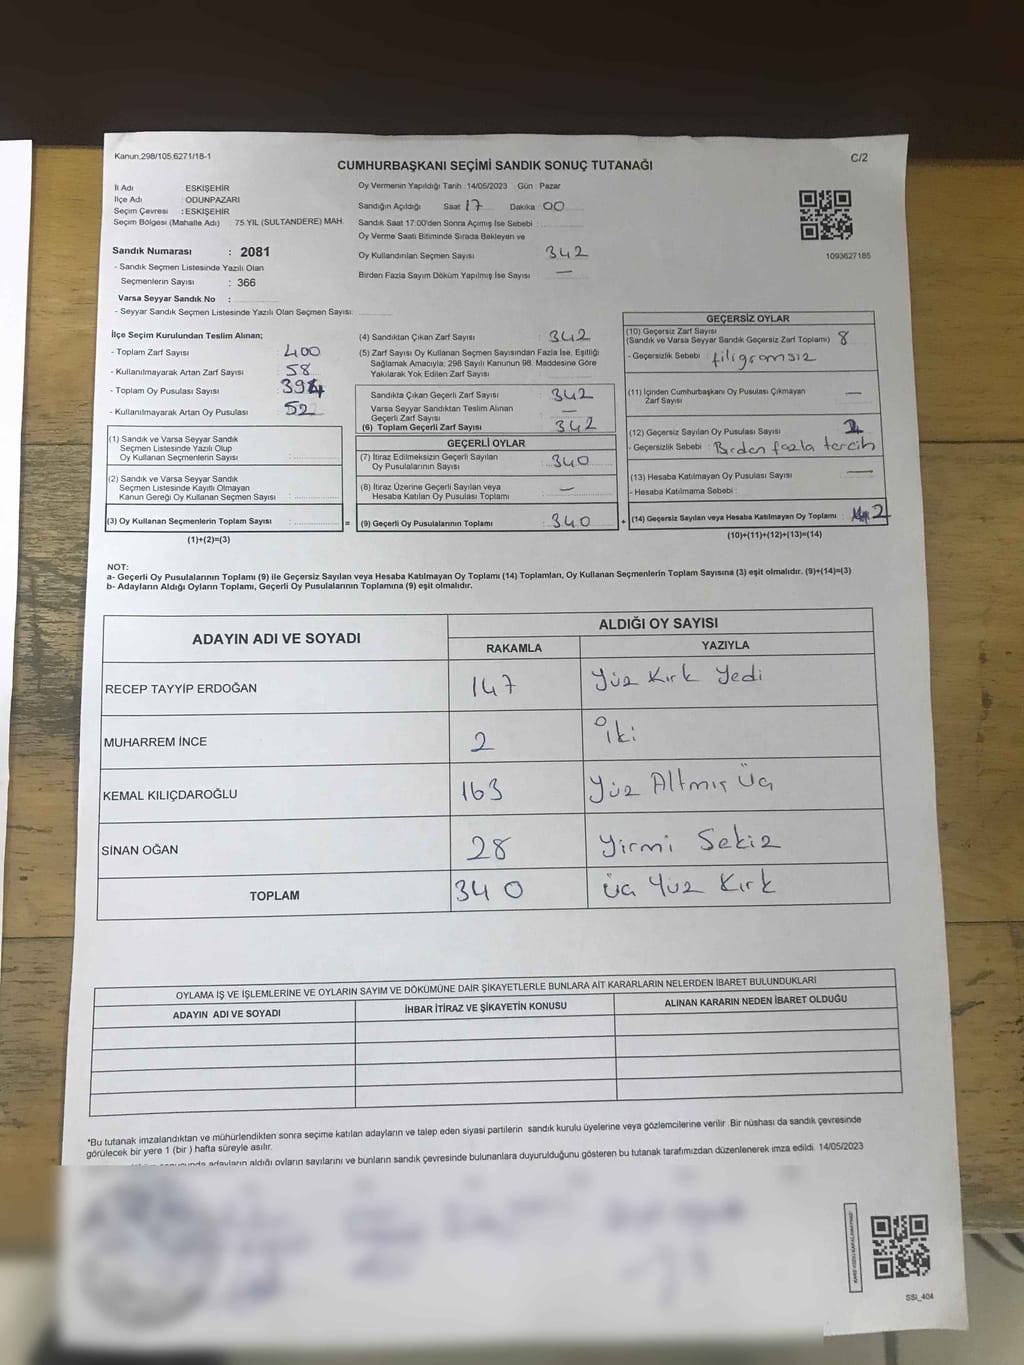 Kanun,298/105,6271/18-1
C/2
CUMHURBAŞKANI SEÇİMİ SANDIK SONUÇ TUTANAĞI
İl Adı ESKİŞEHİR
İlçe Adı : ODUNPAZARI
Seçim Çevresi : ESKİŞEHİR
Seçim Bölgesi (Mahalle Adı) 75.YIL (SULTANDERE) MAH.
Sandık Numarası : 2081
- Sandık Seçmen Listesinde Yazılı Olan
Seçmenlerin Sayısı : 366
Varsa Seyyar Sandık No :
- Seyyar Sandık Seçmen Listesinde Yazılı Olan Seçmen Sayısı:
Oy Vermenin Yapıldığı Tarih :14/05/2023 Gün : Pazar
Sandığın Açıldığı Saat 17 Dakika 00
Sandık Saat 17:00'den Sonra Açımış İse Sebebi :
Oy Verme Saati Bitiminde Sırada Bekleyen ve
Oy Kullandırılan Seçmen Sayısı 342
Birden Fazla Sayım Döküm Yapılmış İse Sayısı —
1093627185
İlçe Seçim Kurulundan Teslim Alınan;
- Toplam Zarf Sayısı : 400
- Kullanılmayarak Artan Zarf Sayısı : 58
- Toplam Oy Pusulası Sayısı : 394
- Kullanılmayarak Artan Oy Pusulası : 52
(1) Sandık ve Varsa Seyyar Sandık
Seçmen Listesinde Yazılı Olup
Oy Kullanan Seçmenlerin Sayısı :
(2) Sandık ve Varsa Seyyar Sandık
Seçmen Listesinde Kayıtlı Olmayan
Kanun Gereği Oy Kullanan Seçmen Sayısı :
(3) Oy Kullanan Seçmenlerin Toplam Sayısı : =
(1)+(2)=(3)
(4) Sandıktan Çıkan Zarf Sayısı : 342
(5) Zarf Sayısı Oy Kullanan Seçmen Sayısından Fazla İse, Eşitliği
Sağlamak Amacıyla; 298 Sayılı Kanunun 98. Maddesine Göre
Yakılarak Yok Edilen Zarf Sayısı :
Sandıkta Çıkan Geçerli Zarf Sayısı : 342
Varsa Seyyar Sandıktan Teslim Alınan
Geçerli Zarf Sayısı : —
(6) Toplam Geçerli Zarf Sayısı : 342
GEÇERLİ OYLAR
(7) İtiraz Edilmeksizin Geçerli Sayılan
Oy Pusulalarının Sayısı : 340
(8) İtiraz Üzerine Geçerli Sayılan veya
Hesaba Katılan Oy Pusulası Toplamı : —
(9) Geçerli Oy Pusulalarının Toplamı : 340 +
GEÇERSİZ OYLAR
(10) Geçersiz Zarf Sayısı
(Sandık ve Varsa Seyyar Sandık Geçersiz Zarf Toplamı) : 8
- Geçersizlik Sebebi : filigramsız
(11) İçinden Cumhurbaşkanı Oy Pusulası Çıkmayan
Zarf Sayısı : —
(12) Geçersiz Sayılan Oy Pusulası Sayısı :
- Geçersizlik Sebebi : Birden fazla tercih
(13) Hesaba Katılmayan Oy Pusulası Sayısı : —
- Hesaba Katılmama Sebebi :
(14) Geçersiz Sayılan veya Hesaba Katılmayan Oy Toplamı : 2
(10)+(11)+(12)+(13)=(14)
NOT:
a- Geçerli Oy Pusulalarının Toplamı (9) ile Geçersiz Sayılan veya Hesaba Katılmayan Oy Toplamı (14) Toplamları, Oy Kullanan Seçmenlerin Toplam Sayısına (3) eşit olmalıdır. (9)+(14)=(3)
b- Adayların Aldığı Oyların Toplamı, Geçerli Oy Pusulalarının Toplamına (9) eşit olmalıdır.
ADAYIN ADI VE SOYADI ALDIĞI OY SAYISI
RAKAMLA YAZIYLA
RECEP TAYYİP ERDOĞAN 147 Yüz Kırk Yedi
MUHARREM İNCE 2 İki
KEMAL KILIÇDAROĞLU 163 Yüz Altmış Üç
SİNAN OĞAN 28 Yirmi Sekiz
TOPLAM 340 Üç Yüz Kırk
OYLAMA İŞ VE İŞLEMLERİNE VE OYLARIN SAYIM VE DÖKÜMÜNE DAİR ŞİKAYETLERLE BUNLARA AİT KARARLARIN NELERDEN İBARET BULUNDUKLARI
ADAYIN ADI VE SOYADI İHBAR İTİRAZ VE ŞİKAYETİN KONUSU ALINAN KARARIN NEDEN İBARET OLDUĞU
*Bu tutanak imzalandıktan ve mühürlendikten sonra seçime katılan adayların ve talep eden siyasi partilerin sandık kurulu üyelerine veya gözlemcilerine verilir. Bir nüshası da sandık çevresinde
görülecek bir yere 1 (bir ) hafta süreyle asılır.
adayların aldığı oyların sayılarını ve bunların sandık çevresinde bulunanlara duyurulduğunu gösteren bu tutanak tarafımızdan düzenlenerek imza edildi. 14/05/2023
SSİ_404